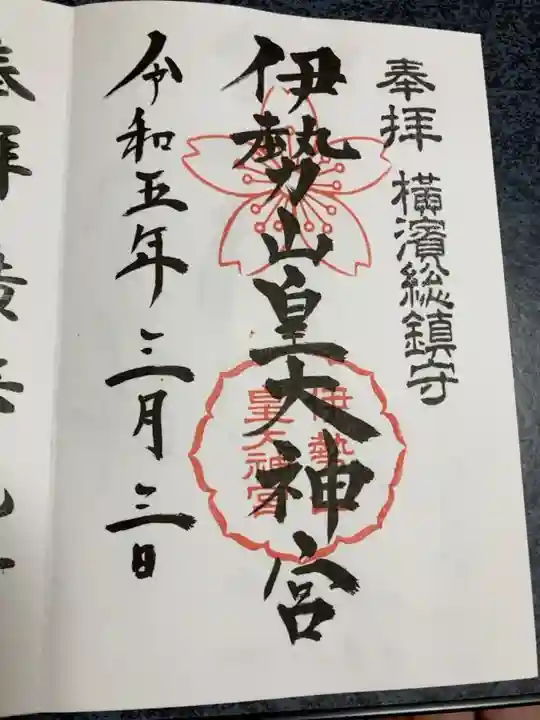 奉拝 横濱総鎮守
伊勢山皇大神宮
伊勢山
皇大神宮
令和五年三月三日